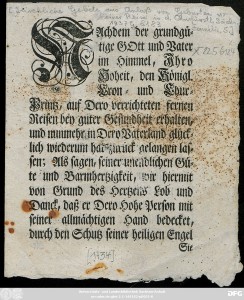 NAchdem der grundgü-
tige GOtt und Vater
im Himmel, Ihro
Hoheit, den Königl.
Cron- und Chur-
Printz, auf Dero verrichteten fernen
Reisen bey guter Gesundheit erhalten,
und nunmehr in Dero Vaterland glück-
lich wiederum hat zurück gelangen las-
sen: Als sagen, seiner unendlichen Gü-
te und Barmhertzigkeit, wir hiermit
von Grund des Hertzens Lob und
Danck, daß er Dero Hohe Person mit
seiner allmächtigen Hand bedecket,
durch den Schutz seiner heiligen Engel
Sie